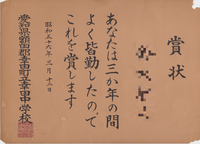 賞状
あなたは三か年の間
よく皆勤したので
これを賞します
昭和五十六年三月十三日
愛知県額田郡幸田町立幸田中学校